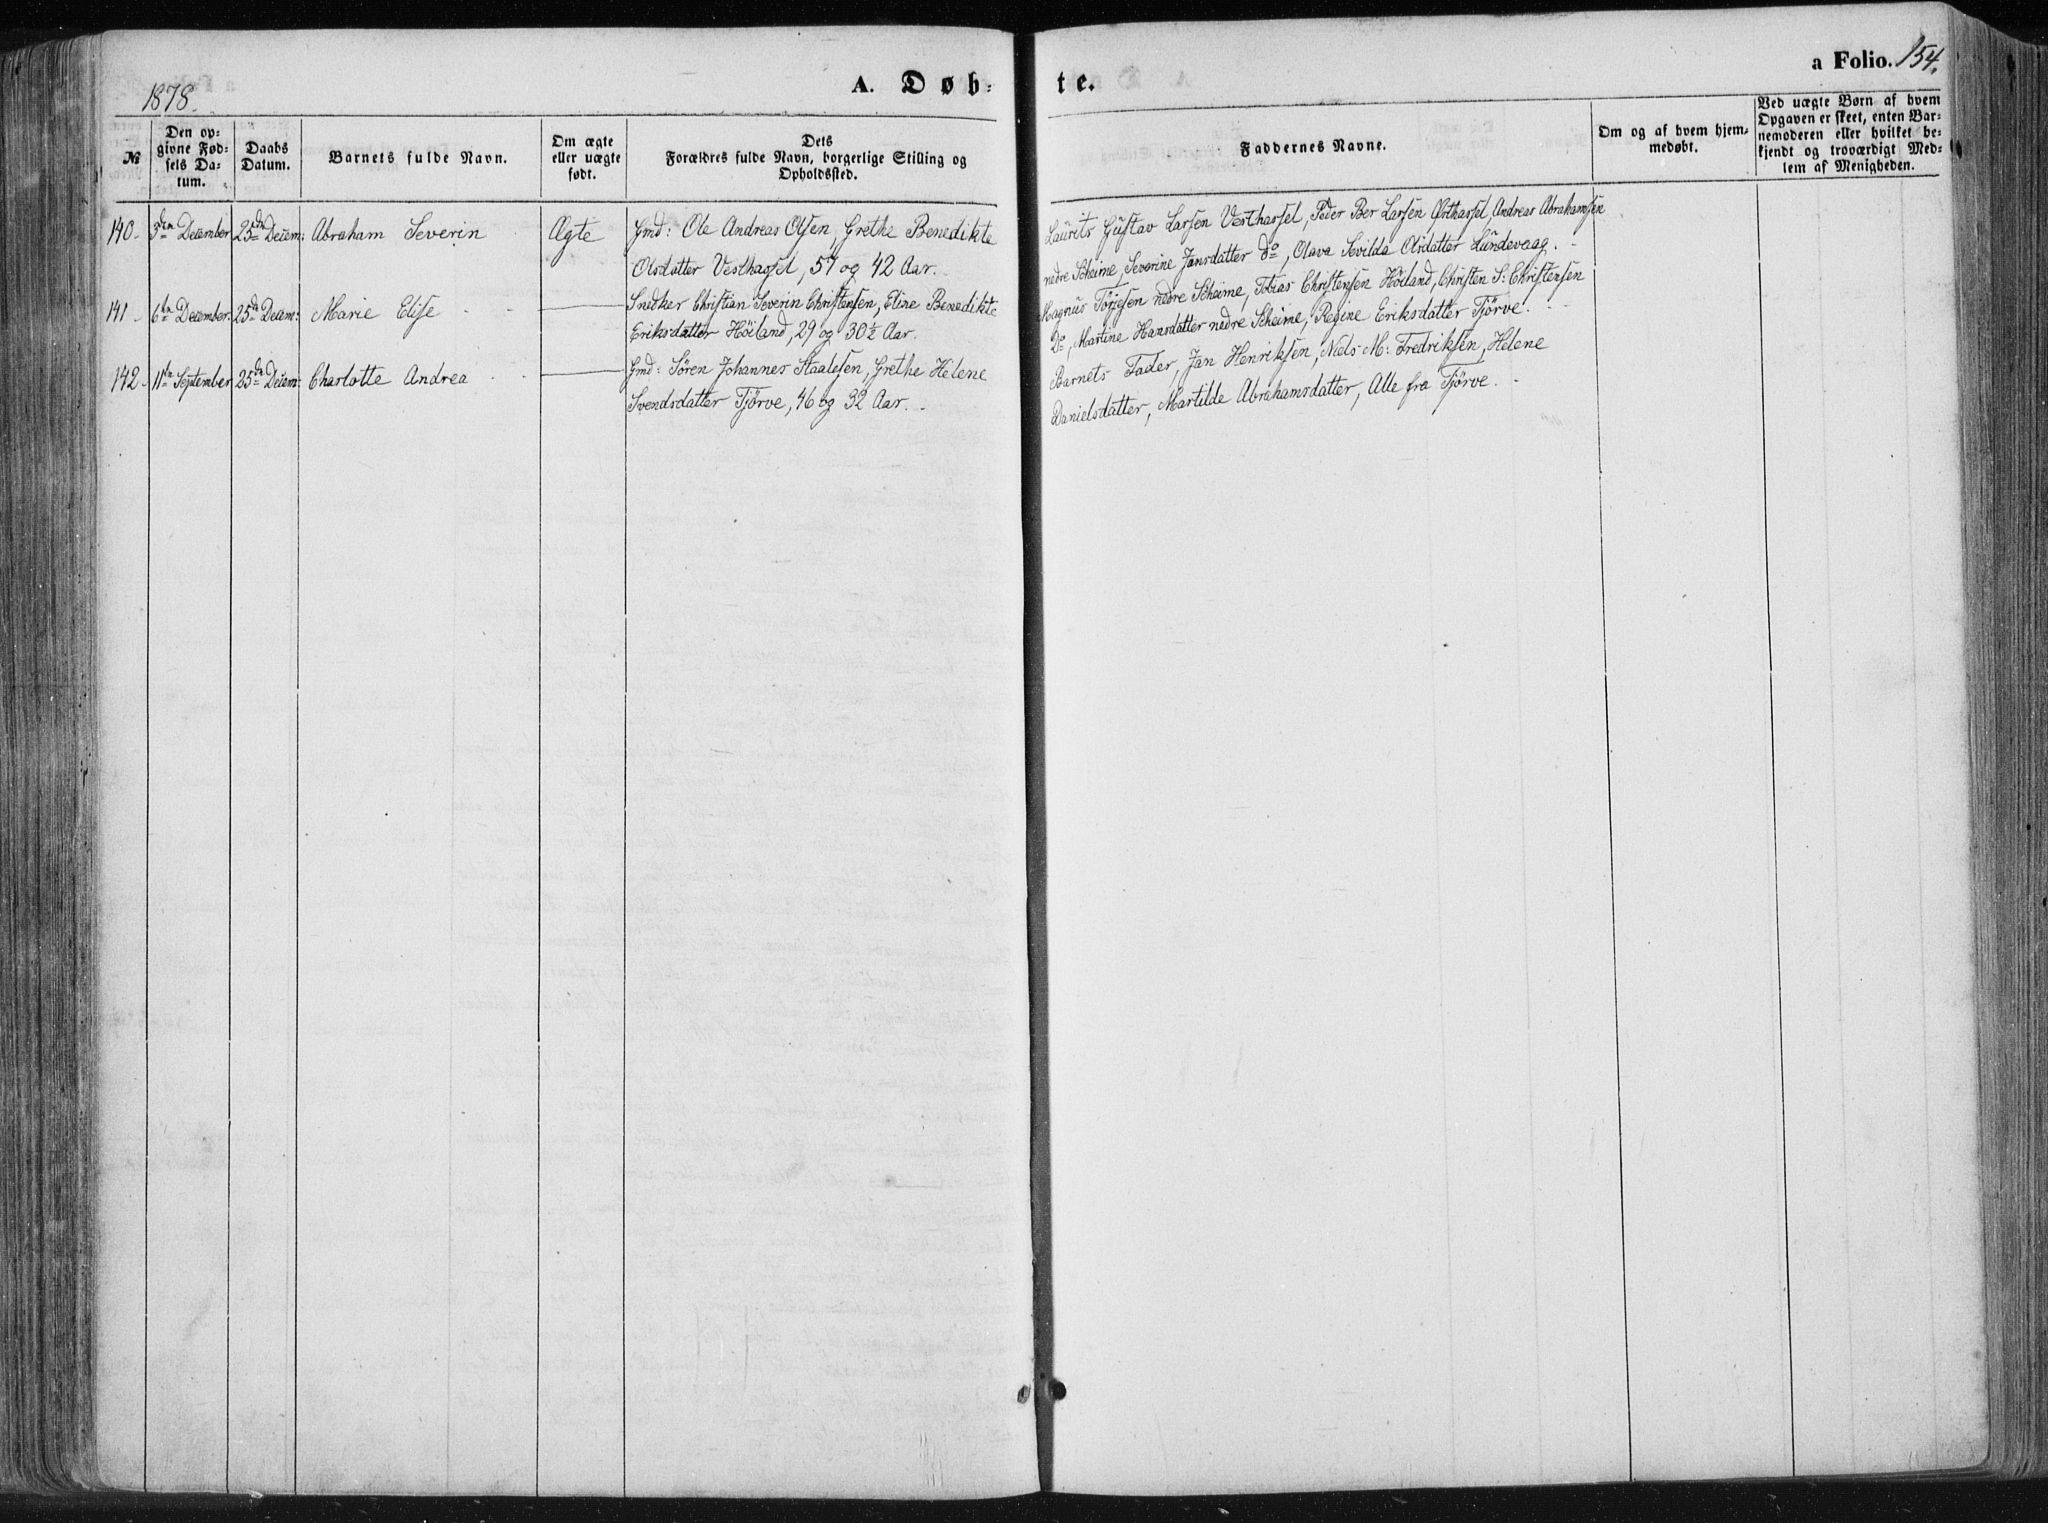 1878.
A. Døb-
te.
a Folio. 154.
№
Den op-
givne Fød-
sels Da-
tum.
Daabs
Datum.
Barnets fulde Navn.
Om ægte
eller uægte
født.
Dets
Forældres fulde Navn, borgerlige Stilling og
Opholdssted.
Faddernes Navne.
Om og af hvem hjem-
medøbt.
Ved uægte Børn af hvem
Opgaven er skeet, enten Bar-
nemoderen eller hvilket be-
kjendt og troværdigt Med-
lem af Menigheden.
140. December 25de Decem: Abraham Severin Ægte Gmd: Ole Andreas Olsen, Grethe Benedikte
Olsdatter Vesthassel, 57 og 42 Aar.
Laurits Gustav Larsen Vesthassel, Peder Ber Larsen Østhassel, Andreas Abrahamsen
nedre Scheime, Severine Jansdatter do, Olava Sevilda Olsdatter Lundevaag.
141. 6te December. 25de Decem: Marie Elise Snedker Christian Severin Christensen, Eline Benedikte
Eriksdatter Höiland, 29 og 30½ Aar.
Magnus Törjesen nedre Scheime, Tobias Christensen Höiland, Christen S: Christensen
Do, Martine Hansdatter nedre Scheime, Regine Eriksdatter Tjörve.
142. 11te September 25de Decem: Charlotte Andrea Gmd: Sören Johannes Staalesen, Grethe Helene
Svendsdatter Tjörve, 46 og 32 Aar.
Barnets Fader, Jan Henriksen, Niels M: Fredriksen, Helene
Danielsdatter, Martilde Abrahamsdatter, Alle fra Tjörve.